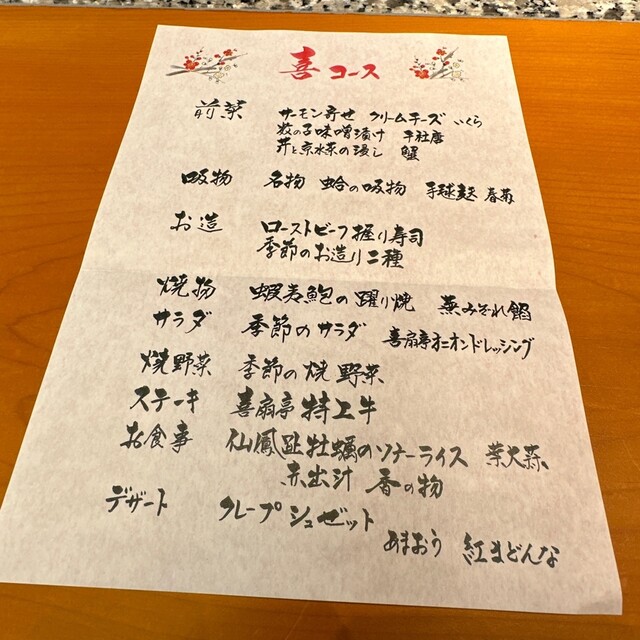 喜コース
前菜 サーモン寄せ クリームチーズ いくら
数の子味噌漬け 千社唐
芹と京水菜の浸し 蟹
吸物 名物 蛤の吸物 手毬麩 春菊
お造 ローストビーフ握り寿司
季節のお造り二種
焼物 蝦夷鮑の躍り焼 蕪みぞれ餡
サラダ 季節のサラダ 喜扇亭オニオンドレッシング
焼野菜 季節の焼野菜
ステーキ 喜扇亭特上牛
お食事 仙鳳趾牡蠣のソテーライス 葉大蒜
赤出汁 香の物
デザート クレープシュゼット
あまおう 紅まどんな